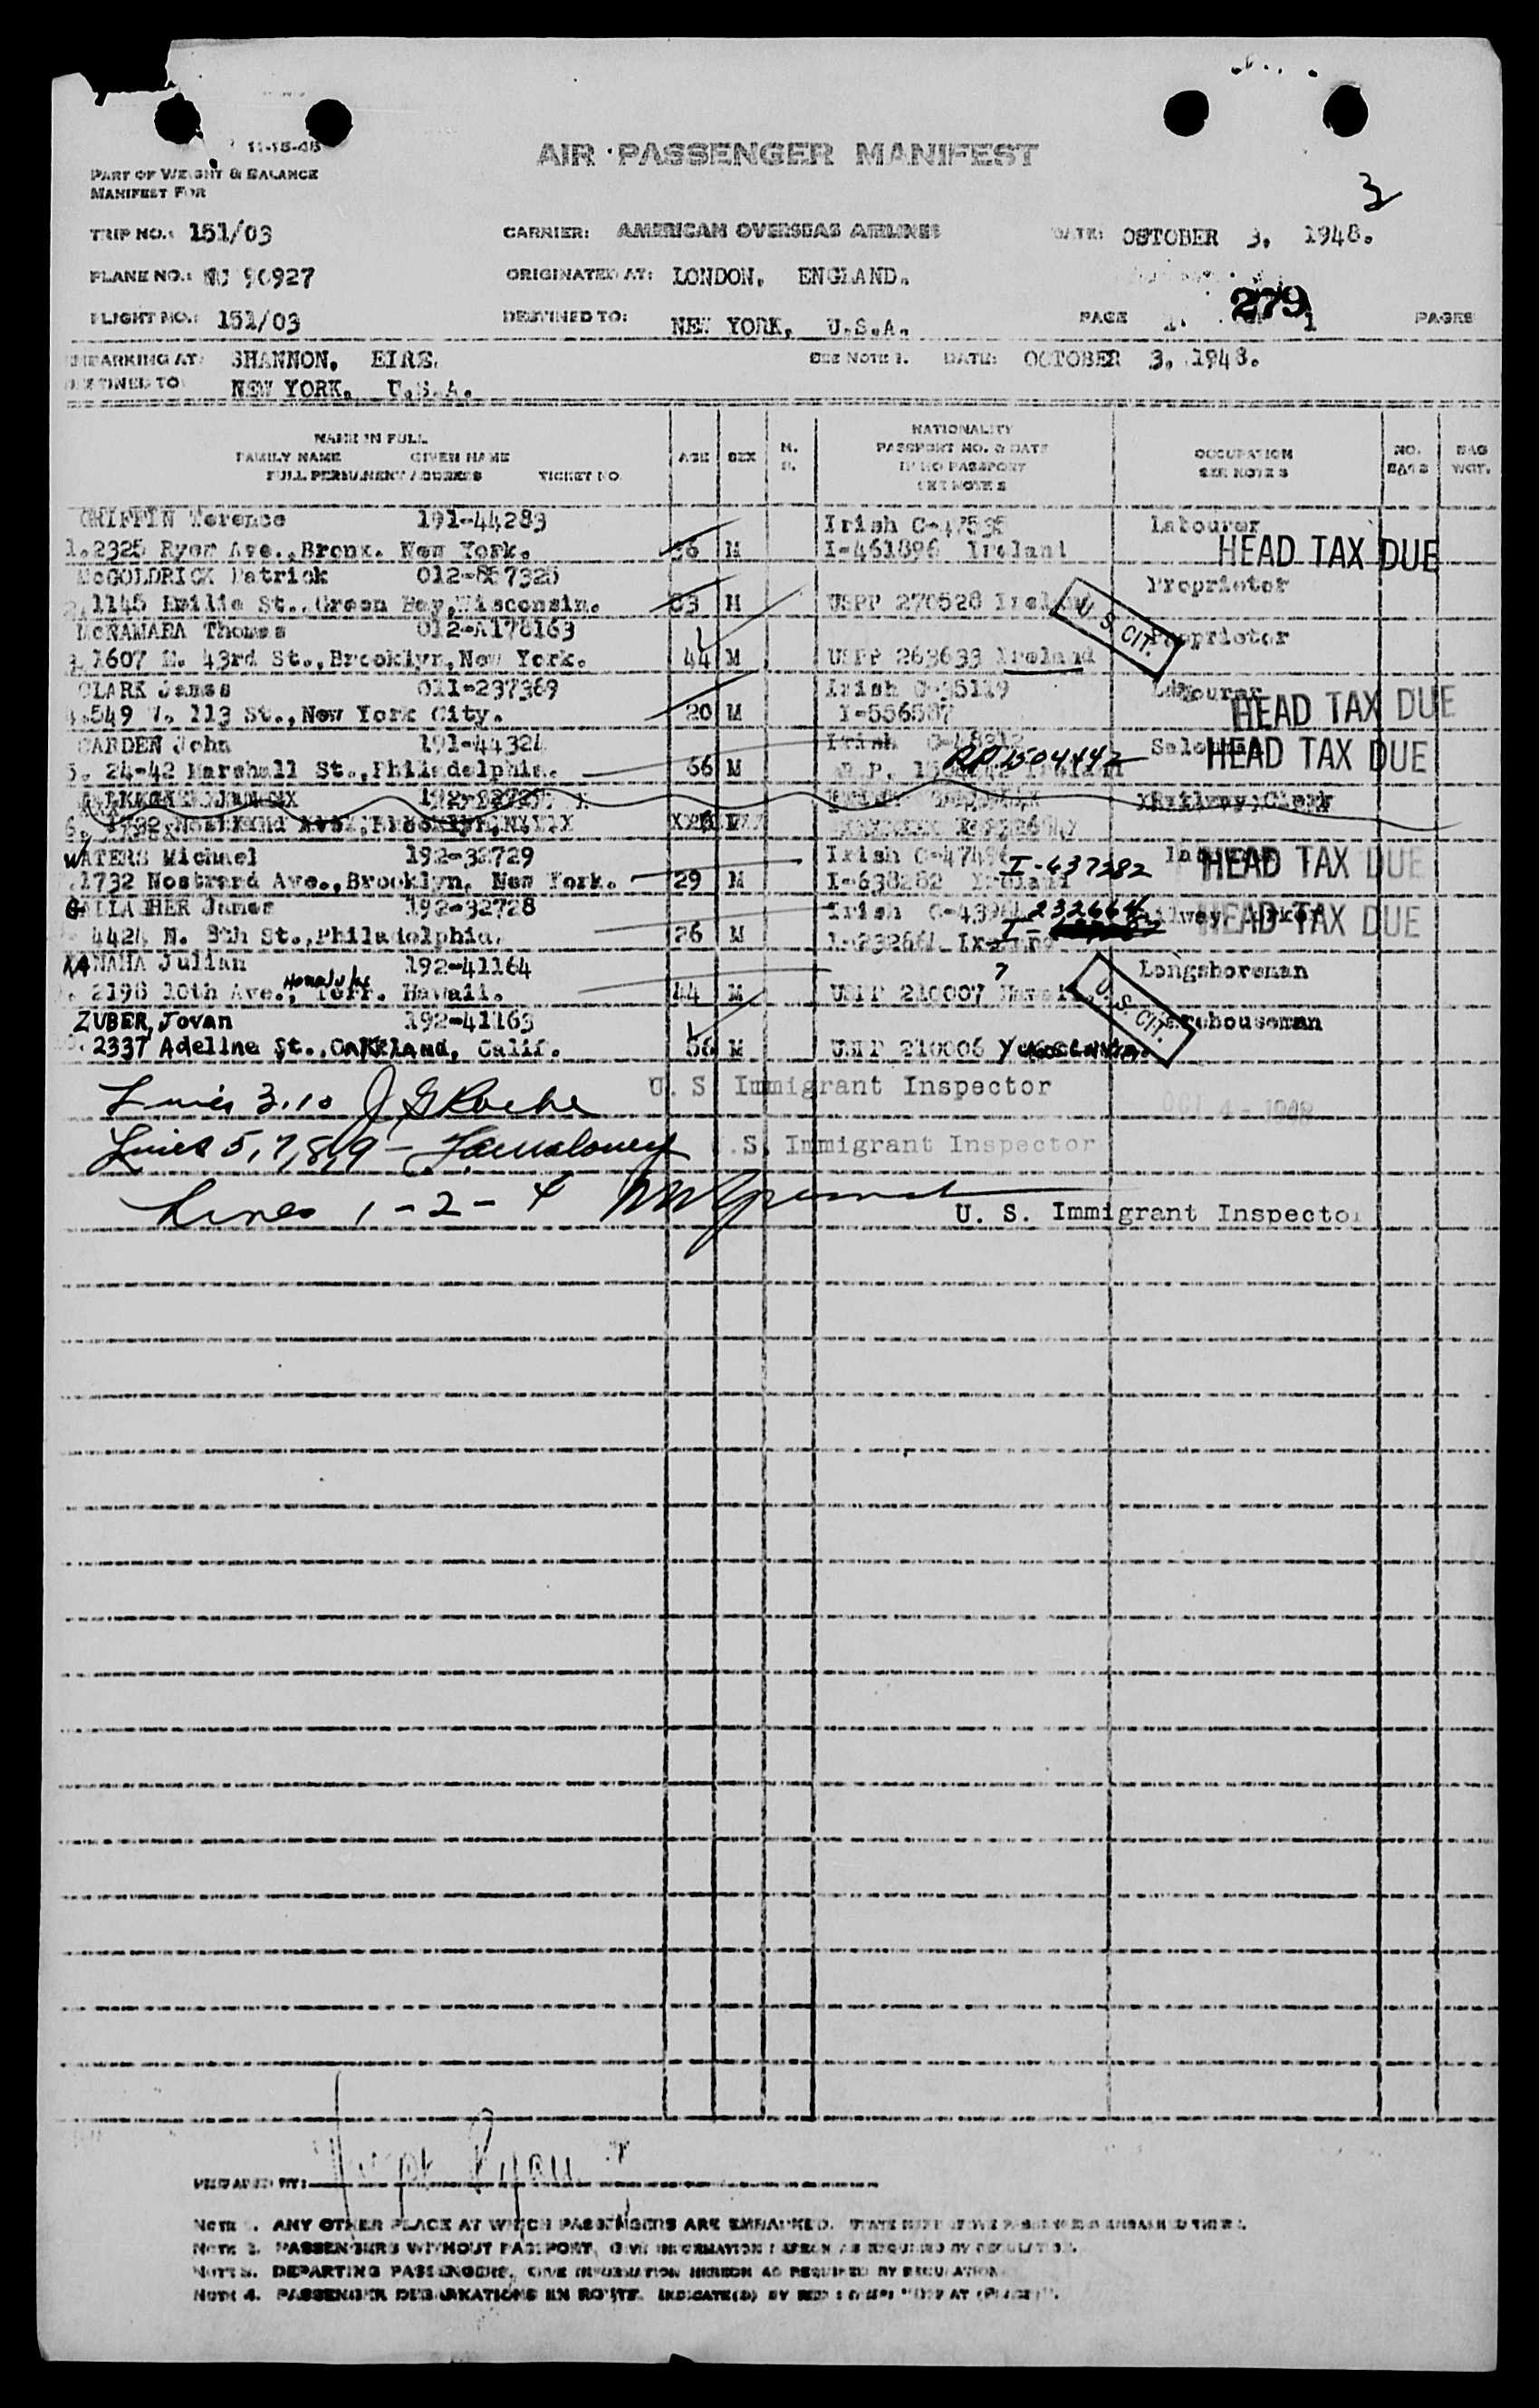 11-15-46
AIR PASSENGER MANIFEST
PART OF WEIGHT & BALANCE
MANIFEST FOR
3
TRIP NO.: 151/03 CARRIER: AMERICAN OVERSEAS AIRLINES DATE: OSTOBER 3. 1948.
PLANE NO.: NC 90927 ORIGINATED AT: LONDON, ENGLAND.
279
FLIGHT NO.: 151/03 DESTINED TO: NEW YORK, U.S.A. PAGE 1. OF 1 PAGES
EMBARKING AT: SHANNON, EIRE. SEE NOTE 1. DATE: OCTOBER 3. 1948.
DESTINED TO NEW YORK, U.S.A.
NAME IN FULL
FAMILY NAME GIVEN NAME
FULL PERMANENT ADDRESS TICKET NO.
AGE SEX
NATIONALITY
PASSPORT NO. & DATE
IF NO PASSPORT
SEE NOTE 2
OCCUPATION
SEE NOTE 3
NO. BAGS
BAG WGT.
GRIFFIN Terence 191-44283 Irish C-47535 Labourer
1. 2325 Ryer Ave., Bronx. New York. 36 M I-461896 Ireland HEAD TAX DUE
McGOLDRICK Patrick 012-867325 Proprietor
2. 1145 Emilie St., Green Bay, Wisconsin. 63 M USPP 270528 Ireland U. S. CIT.
McNAMARA Thomas 012-A178163 Proprietor
3. 1607 E. 43rd St., Brooklyn, New York. 44 M USPP 263633 Ireland
CLARK James 011-237369 Irish C-35119 Labourer
4. 549 W. 113 St., New York City. 20 M I-556587 HEAD TAX DUE
CARDEN John 191-44324 Irish
5. 24-42 Marshall St., Philadelphia. 66 M R.P. 1504442 Ireland RP 1504442 HEAD TAX DUE
Railway Clerk
WATERS Michael 192-32729 Irish C-47496
1732 Nostrand Ave., Brooklyn, New York. 29 M I-638282 Ireland I-637282 HEAD TAX DUE
GALLAGHER James 192-32728 Irish
4424 N. 8th St., Philadelphia. 26 M I-232664 Ireland 232664 Railway Clerk HEAD TAX DUE
KANAHA Julian 192-41164 Longshoreman
2196 10th Ave., Honolulu Terr. Hawaii. 44 M USPP 210007 Hawaii U. S. CIT.
ZUBER, Jovan 192-41163 Warehouseman
2337 Adeline St., OAKLAND, Calif. 56 M USPP 210006 YUGOSLAVIA.
Lines 3, 10 J G Roche U. S. Immigrant Inspector OCT 4 - 1948
Lines 5, 7, 8, 9 - U. S. Immigrant Inspector
Lines 1 - 2 - 4 U. S. Immigrant Inspector
PREPARED BY: Joseph Ryan
NOTE 1. ANY OTHER PLACE AT WHICH PASSENGERS ARE EMBARKED.
NOTE 2. PASSENGERS WITHOUT PASSPORT, GIVE INFORMATION HEREON AS REQUIRED BY REGULATION.
NOTE 3. DEPARTING PASSENGERS, GIVE INFORMATION HEREON AS REQUIRED BY REGULATION
NOTE 4. PASSENGER DEBARKATIONS EN ROUTE. INDICATE(D) BY